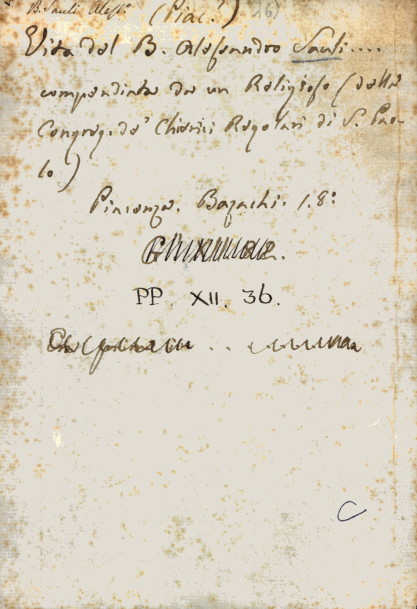 B. Sauli Aless.
(Piac.ª) 26)
Vita del B. Alessandro Sauli....
compendiata da un Religioso (della
Congreg. de' Chierici Regolari di S. Pao-
lo)
Piacenza. Bazachi. 1.8:
PP. XII. 36.
C